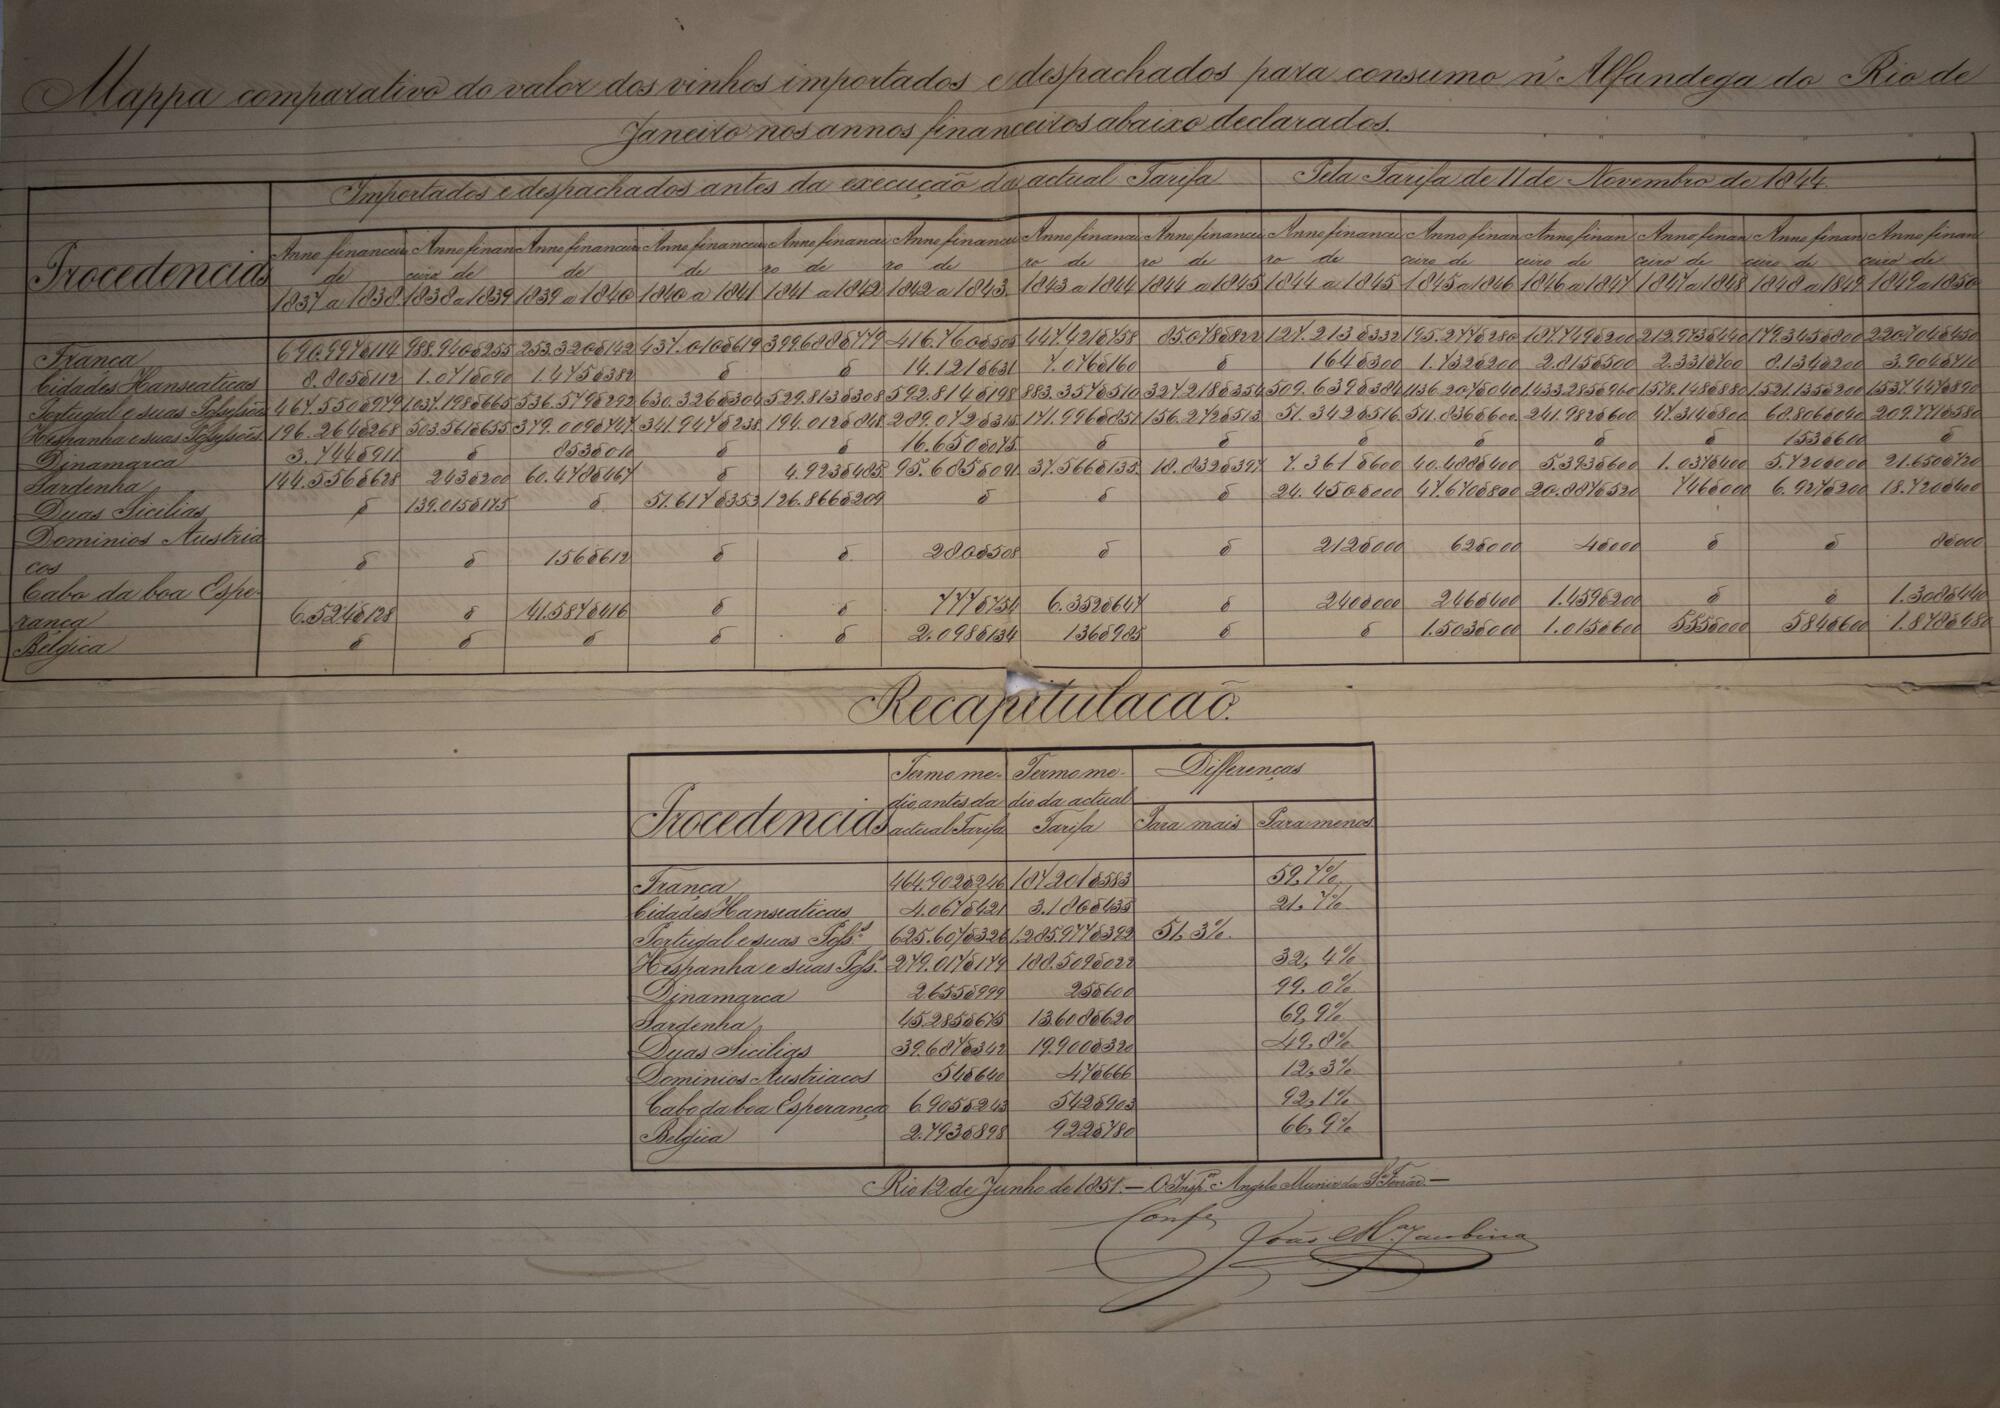 Mappa comparativo do valor dos vinhos importados e despachados para consumo n'Alfandega do Rio de
Janeiro nos annos financeiros abaixo declarados.
Importados e despachados antes da execução da actual Tarifa Pela Tarifa de 11 de Novembro de 1844.
Procedencias
Anno financeiro de 1837 a 1838 Anno financeiro de 1838 a 1839 Anno financeiro de 1839 a 1840 Anno financeiro de 1840 a 1841 Anno financeiro de 1841 a 1842 Anno financeiro de 1842 a 1843 Anno financeiro de 1843 a 1844 Anno financeiro de 1844 a 1845 Anno financeiro de 1844 a 1845 Anno financeiro de 1845 a 1846 Anno financeiro de 1846 a 1847 Anno financeiro de 1847 a 1848 Anno financeiro de 1848 a 1849 Anno financeiro de 1849 a 1850
França 690.997$114 988.940$255 253.320$142 437.010$619 399.688$779 416.760$505 447.421$758 85.078$822 127.213$332 195.277$280 187.749$200 212.973$440 179.345$800 220.704$450
Cidades Hanseaticas 8.805$112 1.071$090 1.475$382 $ $ 14.121$631 7.076$160 $ 164$300 1.732$200 2.815$500 2.331$700 8.134$200 3.904$710
Portugal e suas Possessões 467.550$979 1037.198$665 536.579$292 630.326$304 529.813$308 592.814$198 883.357$510 327.218$354 509.639$384 1136.207$040 1433.285$900 1578.148$880 1521.135$200 1537.447$890
Hespanha e suas Possessões 196.264$268 503.561$655 379.009$747 341.947$238 194.012$848 289.072$315 171.996$851 156.272$513 51.342$516 511.836$600 241.982$600 47.314$800 68.806$040 209.771$580
Dinamarca 3.744$911 $ 853$010 $ $ 16.650$075 $ $ $ $ $ $ 153$600 $
Sardenha 144.556$628 243$200 60.478$467 $ 4.923$485 95.685$091 37.566$135 18.832$397 7.361$600 40.488$400 5.393$600 1.037$400 5.720$000 21.650$720
Duas Sicilias $ 139.015$175 $ 51.617$353 126.866$209 $ $ $ 24.450$000 47.670$800 20.887$520 746$000 6.927$200 18.720$400
Dominios Austria
cos $ $ 156$612 $ $ 280$508 $ $ 212$000 62$000 4$000 $ $ 8$000
Cabo da boa Espe-
rança 6.524$128 $ 41.587$416 $ $ 777$754 6.352$647 $ 240$000 246$400 1.459$200 $ $ 1.308$440
Belgica $ $ $ $ $ 2.098$134 136$985 $ $ 1.503$000 1.015$600 555$000 584$600 1.878$480
Recapitulacaõ.
Procedencias
Termo me-
dio antes da
actual Tarifa
Termo me-
dio da actual
Tarifa
Differenças
Para mais Para menos
França 464.902$246 187.201$583 59,7%
Cidades Hanseaticas 4.067$421 3.180$435 21,7%
Portugal e suas Poss.s 625.607$326 1.285.977$392 51,3%
Hespanha e suas Poss.s 279.017$179 188.509$022 32,4%
Dinamarca 2.655$999 25$600 99,0%
Sardenha 45.285$675 13.608$620 69,9%
Duas Sicilias 39.687$342 19.900$320 49,8%
Dominios Austriacos 54$640 47$666 12,3%
Cabo da boa Esperança 6.905$243 542$903 92,1%
Belgica 2.793$898 922$780 66,9%
Rio 12 de Junho de 1851. — O Insp.or Angelo Muniz da S.a Ferraz. —
Conf.e
João M.a